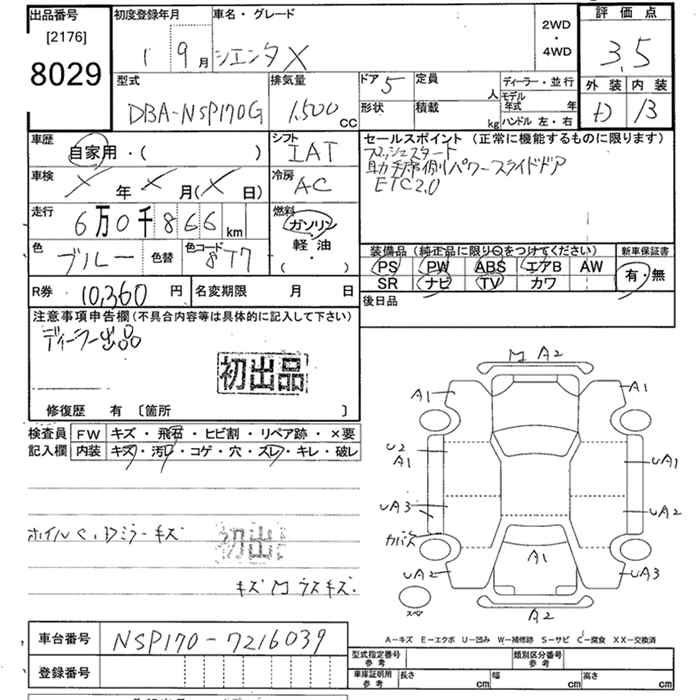 出品番号
[2176]
8029
初度登録年月
1 9月
車名・グレード
シエンタ X
2WD
・
4WD
評価点
3.5
外装 内装
D B
型式
DBA-NSP170G
排気量
1,500 CC
ドア 5
形状
定員 人
積載 kg
ディーラー・並行
モデル年式 年
ハンドル 左・右
車歴
自家用・( )
シフト
IAT
セールスポイント (正常に機能するものに限ります)
プッシュスタート
助手席側パワースライドドア
ETC2.0
車検
X 年 X 月(X 日)
冷房
AC
走行
6万0千866km
燃料
ガソリン
軽油
( ・ )
色
ブルー
色替
色コード
8T7
装備品 (純正品に限り○をつけてください)
PS PW ABS エアB AW
SR ナビ TV カワ
新車保証書
有・無
R券 10,360 円
名変期限 月 日
後日品
注意事項申告欄(不具合内容等は具体的に記入して下さい)
ディーラー出品
初出品
修復歴 有 〔箇所 〕
検査員
記入欄
FW キズ・飛石・ヒビ割・リペア跡・×要
内装 キズ・汚レ・コゲ・穴・ズレ・キレ・破レ
初出
キズ
M A2
A1 A1
U2
A1
UA1
UA3 UA2
カバーズ
A1
UA2 UA3
スペア
A2
A-キズ E-エクボ U-凹み W-補修跡 S-サビ C-腐食 XX-交換済
車台番号 NSP170-7216039
登録番号
型式指定番号
参考
類別区分番号
参考
車庫証明用
参考
長さ cm 幅 cm 高さ cm